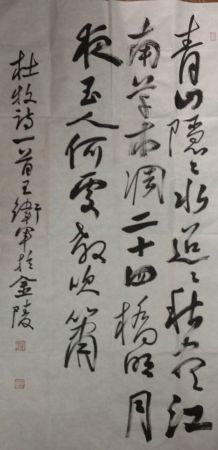 青山隱々水迢々秋尽江
南草木凋二十四橋明月
夜玉人何處教吹簫
杜牧詩一首王衛軍於金陵